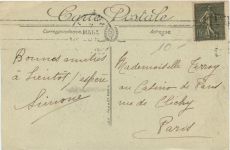 Carte Postale
Correspondance
Adresse
10-
Bonnes amitiés
à bientôt j'espère
Simone
Mademoiselle Terroy
au Casino de Paris
rue de Clichy
Paris